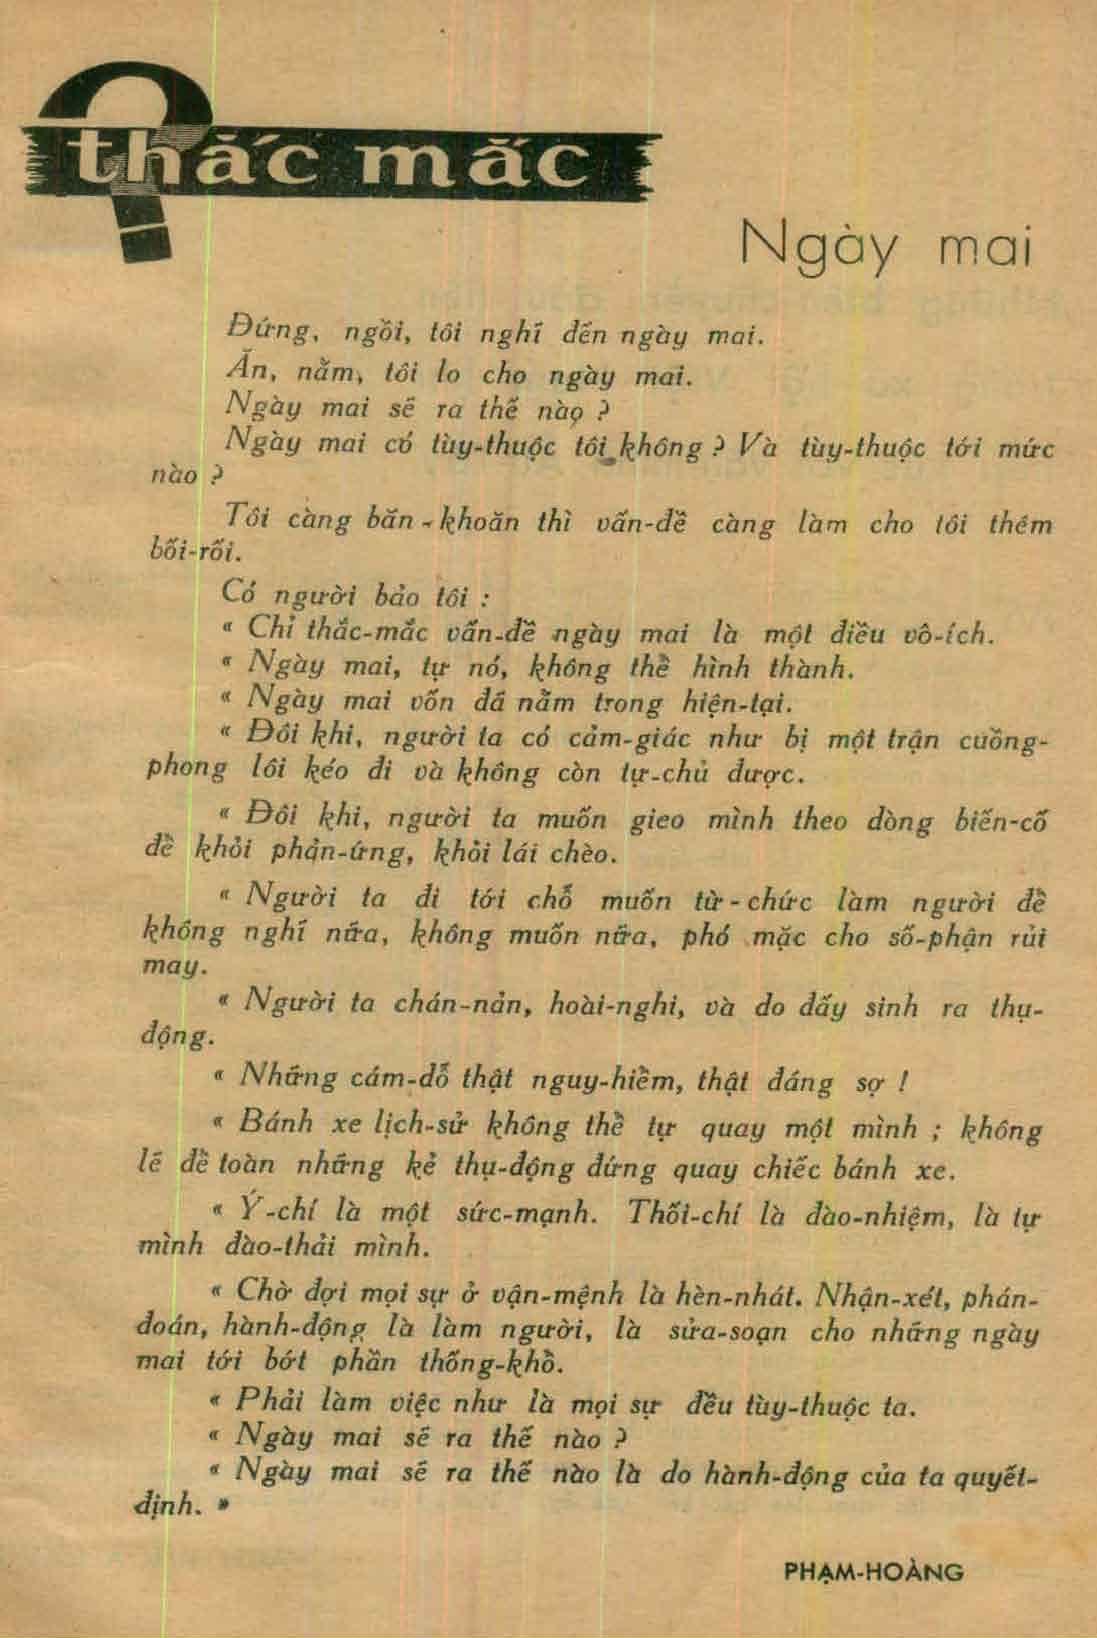 thắc mắc
Ngày mai
Đứng, ngồi, tôi nghĩ đến ngày mai.
Ăn, nằm, tôi lo cho ngày mai.
Ngày mai sẽ ra thế nào ?
Ngày mai có tùy-thuộc tôi không ? Và tùy-thuộc tới mức
nào ?
Tôi càng băn-khoăn thì vấn-đề càng làm cho tôi thêm
bối-rối.
Có người bảo tôi :
« Chỉ thắc-mắc vấn-đề ngày mai là một điều vô-ích.
« Ngày mai, tự nó, không thể hình thành.
« Ngày mai vốn đã nằm trong hiện-tại.
« Đôi khi, người ta có cảm-giác như bị một trận cuồng-
phong lôi kéo đi và không còn tự-chủ được.
« Đôi khi, người ta muốn gieo mình theo dòng biến-cố
để khỏi phản-ứng, khỏi lái chèo.
« Người ta đi tới chỗ muốn từ-chức làm người để
không nghĩ nữa, không muốn nữa, phó mặc cho số-phận rủi
may.
« Người ta chán-nản, hoài-nghi, và do đấy sinh ra thụ-
động.
« Những cám-dỗ thật nguy-hiểm, thật đáng sợ !
« Bánh xe lịch-sử không thể tự quay một mình ; không
lẽ để toàn những kẻ thụ-động đứng quay chiếc bánh xe.
« Ý-chí là một sức-mạnh. Thối-chí là đào-nhiệm, là tự
mình đào-thải mình.
« Chờ đợi mọi sự ở vận-mệnh là hèn-nhát. Nhận-xét, phán-
đoán, hành-động là làm người, là sửa-soạn cho những ngày
mai tới bớt phần thống-khổ.
« Phải làm việc như là mọi sự đều tùy-thuộc ta.
« Ngày mai sẽ ra thế nào ?
« Ngày mai sẽ ra thế nào là do hành-động của ta quyết-
định. »
PHẠM-HOÀNG